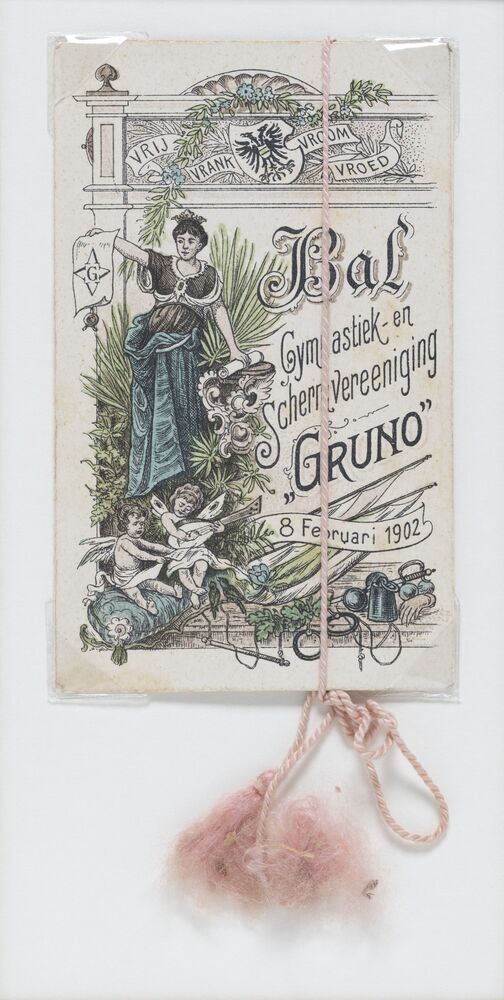 VRIJ VRANK VROOM VROED
A
G
V
Bal
Gymnastiek- en
Schermvereeniging
„GRUNO"
8 Februari 1902